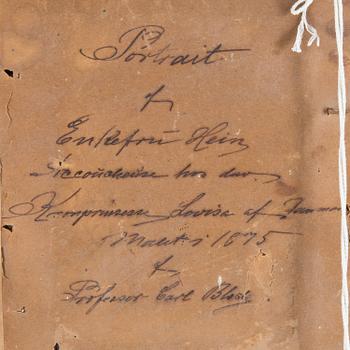 Portrait
af
Enkefrü Hein
Accoucheuse hos dav.
Kronprinsesse Lovisa af Danmar
Malet i 1875
af
Professor Carl Bloch.